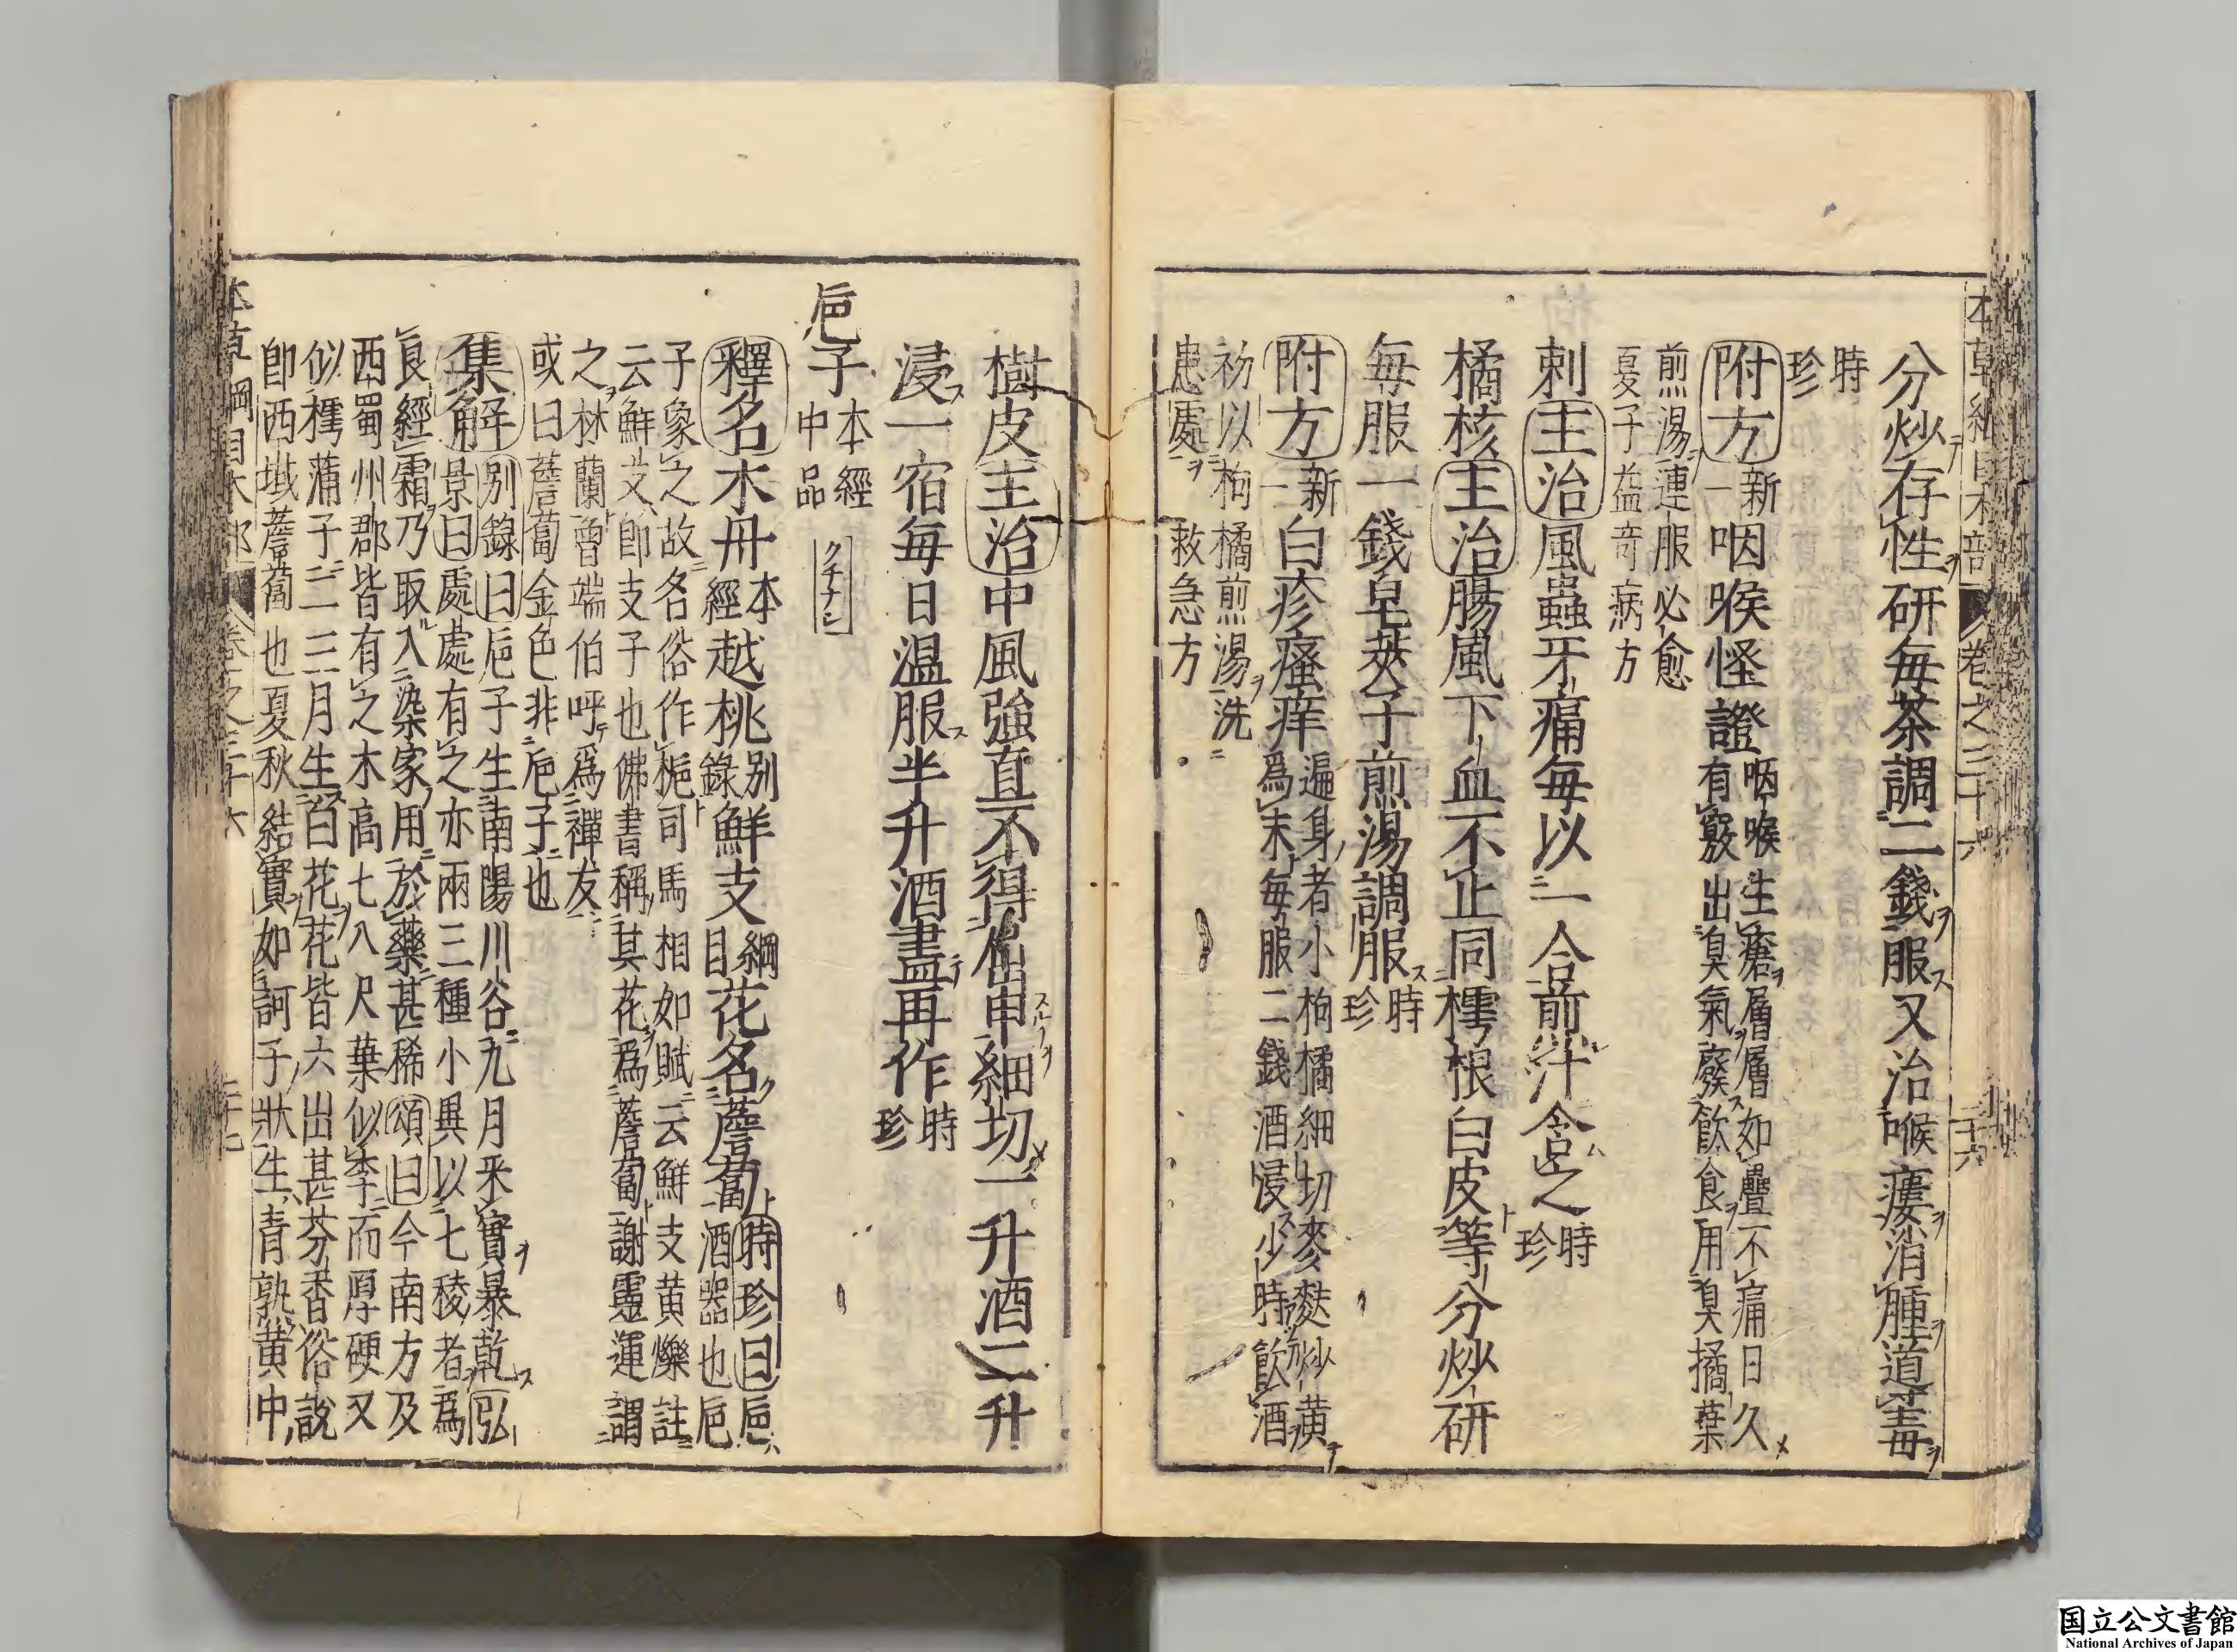 本草綱目木部 卷之三十六 二十六
分炒存性研毎茶調二錢服又治喉瘻消腫道毒
時珍
附方 新一 咽喉怪證 咽喉生瘡層層如疊不痛日久
有竅出臭氣廢飲食用臭橘葉
煎湯連服必愈
夏子益奇病方
刺 主治 風蟲牙痛毎以一合前汁含之 時珍
橘核 主治 腸風下血不止同樗根白皮等分炒研
毎服一錢皂莢子煎湯調服 時珍
附方 新一 白疹瘙痒 遍身者小枸橘細切麥麩炒黄
爲末毎服二錢酒浸少時飲酒
初以枸橘煎湯洗
患處 救急方
樹皮 主治 中風強直不得屈申細切一升酒二升
浸一宿毎日温服半升酒盡再作 時珍
巵子 本經中品 クチナシ
釋名 木丹 本經 越桃 別錄 鮮支 綱目 花名薝蔔 時珍曰 巵
酒器也巵
子象之故名俗作梔司馬相如賦云鮮支黄爍註
云鮮支即支子也佛書稱其花爲薝蔔謝靈運謂
之林蘭曾端伯呼爲禪友
或曰薝蔔金色非巵子也
集解 別録曰 巵子生南陽川谷九月采實暴乾 弘
景曰 處處有之亦兩三種小異以七稜者爲
良經霜乃取入染家用於藥甚稀 頌曰 今南方及
西蜀州郡皆有之木高七八尺葉似李而厚硬又
似樗蒲子二三月生白花花皆六出甚芬香俗說
即西域薝蔔也夏秋結實如訶子狀生青熟黄中
本草綱目木部 卷之三十六 二十七
国立公文書館
National Archives of Japan